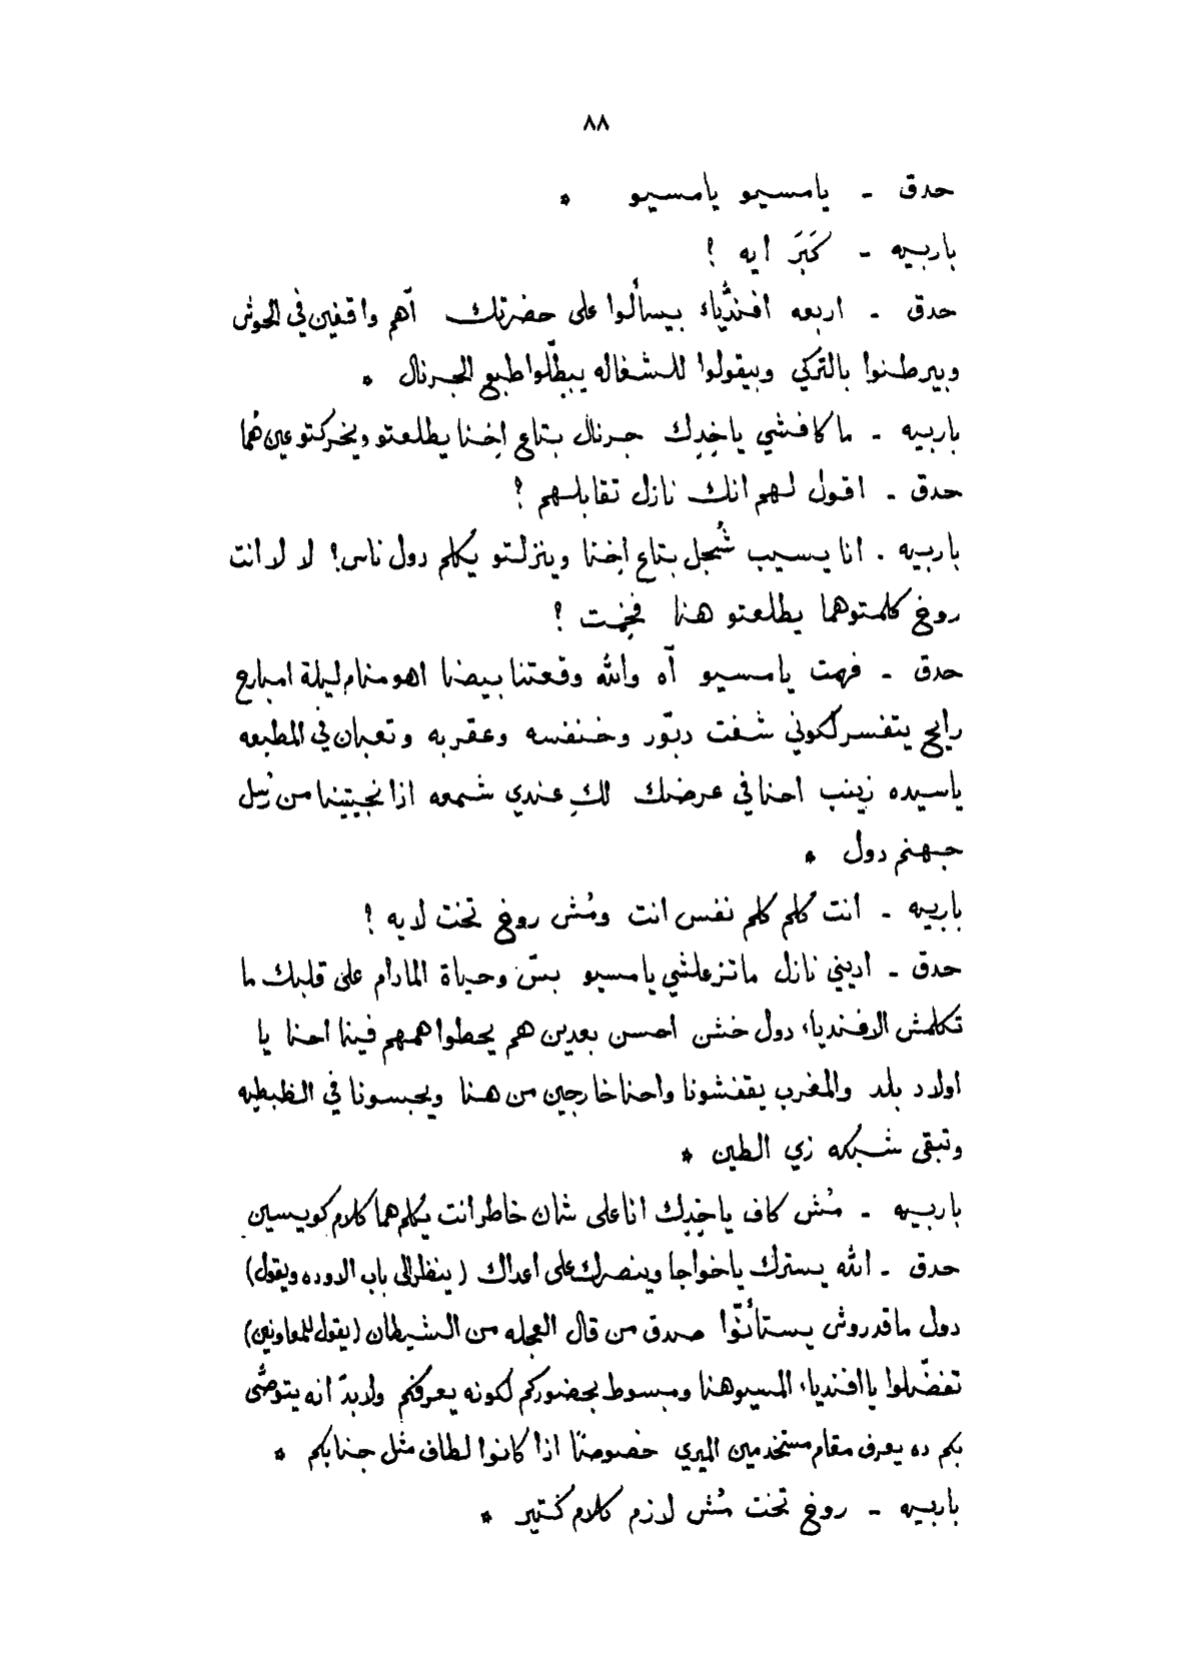 ٨٨
حدق - يامسيو يامسيو *
باربيه - كَبَرَ ايه ؟
حدق - اربعه افنديّاء بيسألوا على حضرتك آهم واقفين في الحوش
وبيرطنوا بالتركي وبيقولوا للشغاله يبطّلوا طبع الجرنال *
باربيه - ما كافشي ياخِدِك جرنال بتاع اِخنا يطلعتو ويخركتو عين هُما
حدق - اقول لهم انك نازل تقابلهم ؟
باربيه - انا يسيب شُجل بتاع اِخنا وينزلتو يكلم دول ناس؟ لا لا انت
روخ كلمتوهما يطلعتو هنا فخِمت ؟
حدق - فهمت يا مسيو آه والله وقعتنا بيضا اهو منام ليلة امبارح
رايح يتفسر لكوني شفت دبّور وخنفسه وعقربه وتعبان في المطبعه
ياسيده زينب احنا في عرضك لكِ عندي شمعه اذا نجيتينا من رُسل
جهنم دول *
باربيه - انت كلم كلم نفس انت ومُش روخ تخت لايه ؟
حدق - اديني نازل ماتزعلشي يامسيو بسّ وحياة المادام على قلبك ما
تكلمش الافنديا، دول خشن احسن بعدين هم يحطوا همهم فينا احنا يا
اولاد بلد والمغرب يقفشونا واحنا خارجين من هنا ويحبسونا في الظبطيه
وتبقى شبكه زي الطين *
باربيه - مُش كاف ياخِدِك انا على شان خاطر انت يكلم هما كلام كويسين
حدق - الله يسترك ياخواجا وينصرك على اعداك (ينظر الى باب الاوده ويقول)
دول ماقدروش يستأنّوا صدق من قال العجله من الشيطان (يقول للمعاونين)
تفضّلوا ياافنديا، المسيو هنا ومبسوط بحضوركم لكونه يعرفكم ولابدّ انه يتوصَّى
بكم ده يعرف مقام مستخدمين الميري خصوصًا اذا كانوا لطاف مثل جنابكم *
باربيه - روخ تخت مُش لازم كلام كْتير *